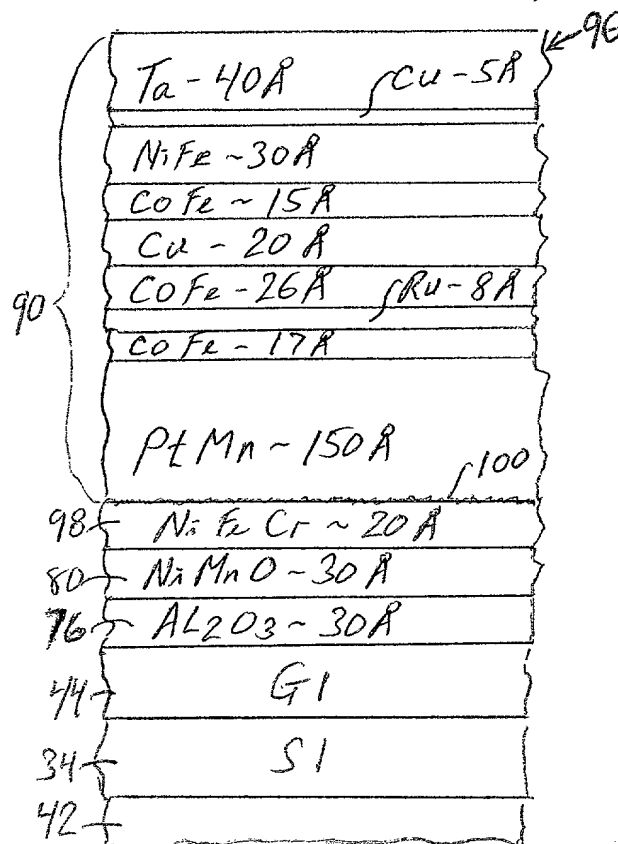 96
Ta-40Å Cu-5Å
NiFe~30Å
CoFe~15Å
Cu-20Å
90
CoFe-26Å Ru-8Å
CoFe-17Å
PtMn~150Å
100
98 NiFeCr~20Å
80 NiMnO-30Å
76 AL2O3~30Å
44 G1
34 S1
42